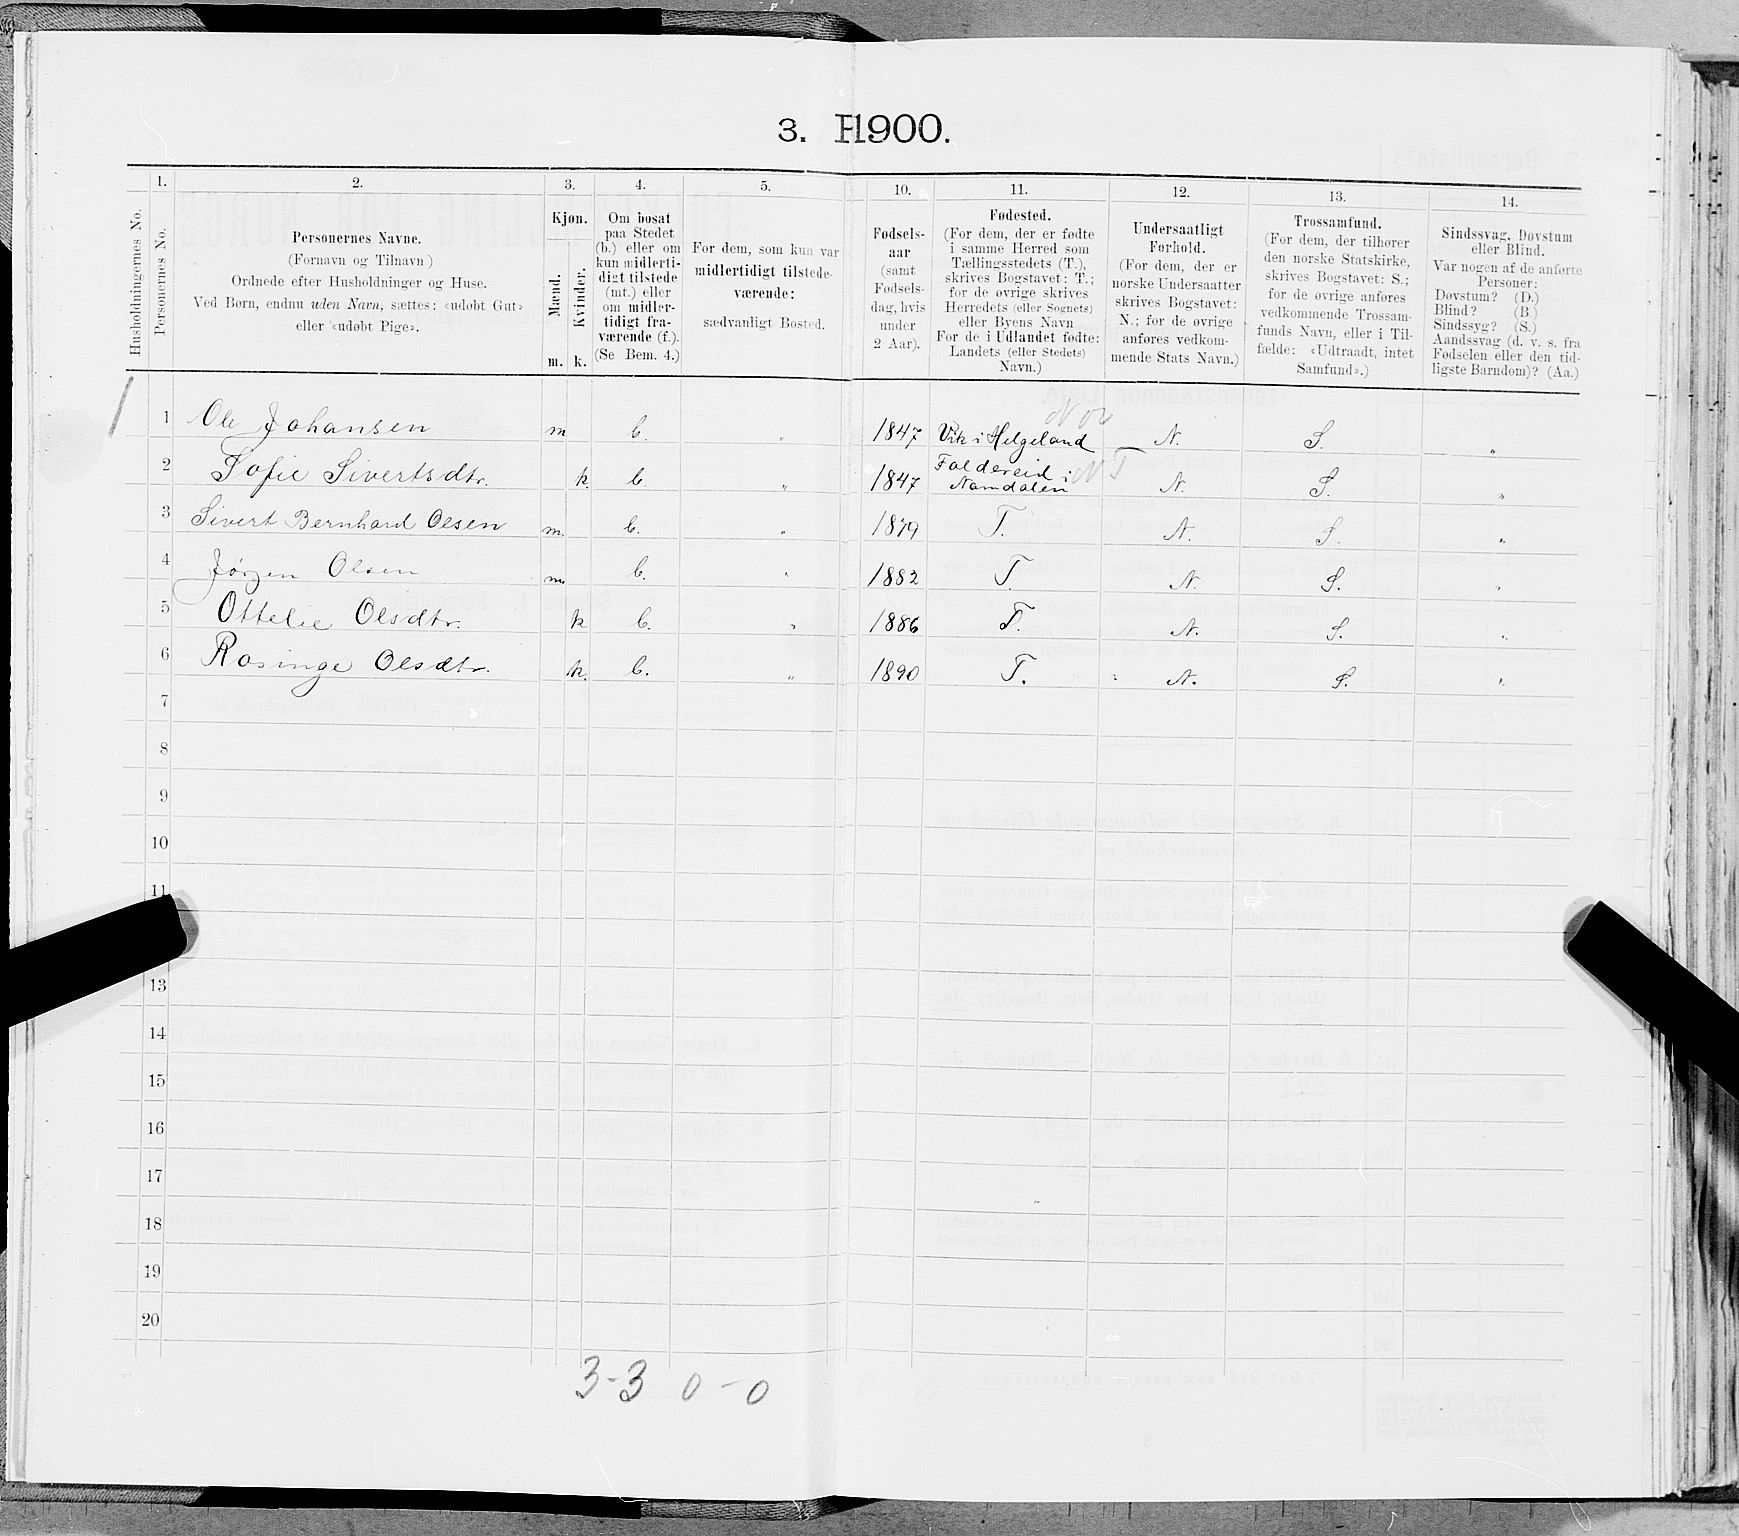 3. H1900.
1. 2. 3. 4. 5. 10. 11. 12. 13. 14.
Husholdningernes No.
Personernes No.
Personernes Navne.
(Fornavn og Tilnavn )
Ordnede efter Husholdninger og Huse.
Ved Børn, endnu uden Navn, sættes: «udøbt Gut»
eller «udøbt Pige».
Kjøn.
Mænd.
Kvinder.
m. k.
Om bosat
paa Stedet
(b.) eller om
kun midlerti-
digt tilstede
(mt.) eller
om midler-
tidigt fra-
værende (f.).
(Se Bem. 4.)
For dem, som kun var
midlertidigt tilstede-
værende:
sædvanligt Bosted.
Fødsels-
aar
(samt
Fødsels-
dag, hvis
under
2 Aar).
Fødested.
(For dem, der er fødte
i samme Herred som
Tællingsstedets (T.),
skrives Bogstavet: T.;
for de øvrige skrives
Herredets (eller Sognets)
eller Byens Navn
For de i Udlandet fødte:
Landets (eller Stedets)
Navn.)
Undersaatligt
Forhold.
(For dem, der er
norske Undersaatter
skrives Bogstavet:
N.; for de øvrige
anføres vedkom-
mende Stats Navn.)
Trossamfund.
(For dem, der tilhører
den norske Statskirke,
skrives Bogstavet: S.;
for de øvrige anføres
vedkommende Trossam-
funds Navn, eller i Til-
fælde: «Udtraadt, intet
Samfund».)
Sindssvag, Døvstum
eller Blind.
Var nogen af de anførte
Personer:
Døvstum? (D.)
Blind? (B.)
Sindssyg? (S.)
Aandssvag (d. v. s. fra
Fødselen eller den tid-
ligste Barndom)? (Aa.)
Nor
1 1 Ole Johansen m b. " 1847 Vik i Helgeland N. S. "
2 Sofie Sivertsdtr. k. b. " 1847 Foldereid i Namdalen NT N. S. "
3 Sivert Bernhard Olsen m. b. " 1879 T. N. S. "
4 Jørgen Olsen m. b. " 1882 T N. S. "
5 Ottelie Olsdtr. k b. " 1886 T. N. S. "
6 Rosinge Olsdtr. k. b. " 1890 T. N. S. "
7
8
9
10
11
13
14
15
16
17
18
19
20
3-3 0-0